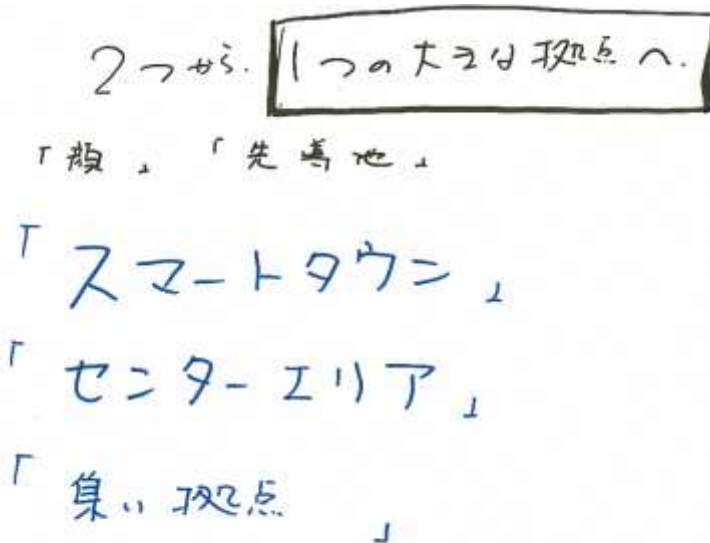 2つから. 1つの大きな拠点へ.
「顔」「先導地」
「スマートタウン」
「センターエリア」
「集い拠点 」